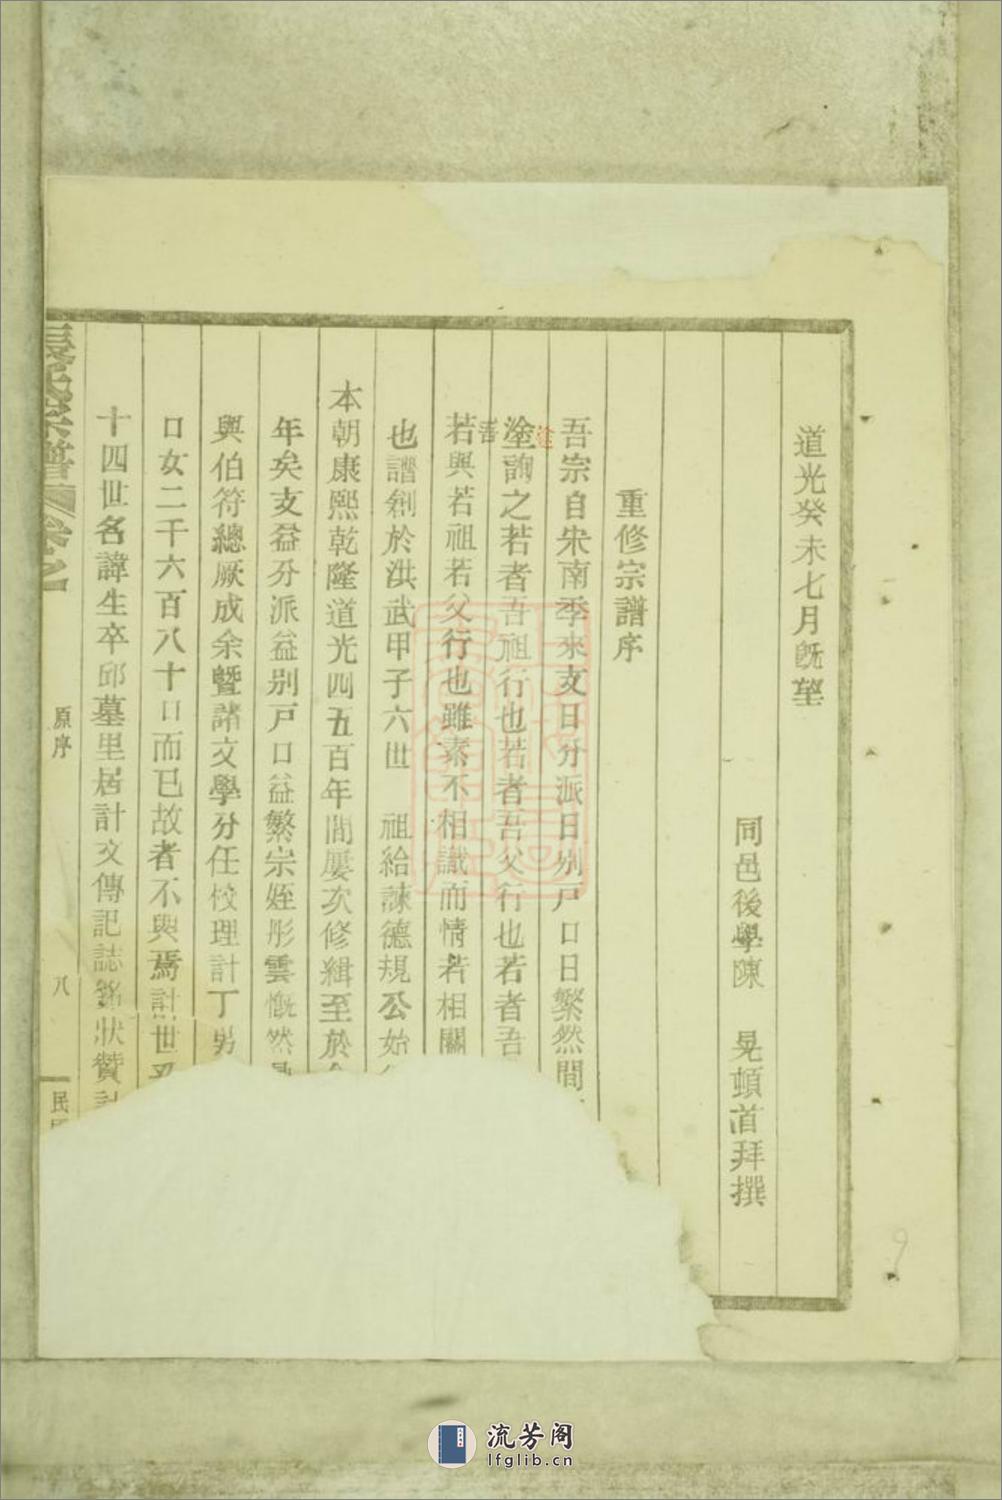 道光癸未七月既望
同邑後學陳　晃頓首拜撰
重修宗譜序
吾宗自宋南季來支日分派日別戸口日繁然間
塗詢之若者吾祖行也若者吾父行也若者吾
若與若祖若父行也雖素不相識而情若相關
也譜創於洪武甲子六世　祖給諫德規公始
本朝康熙乾隆道光四五百年間屢次修緝至於
年矣支益分派益別戸口益繁宗姪彤雲慨然
與伯符總厥成余暨諸文學分任校理計丁男
口女二千六百八十口而已故者不與焉計世
十四世名諱生卒邱墓里居計文傳記誌銘狀贊計
氏宗譜
卷之
原序
八
民
流芳阁
lfglib.cn